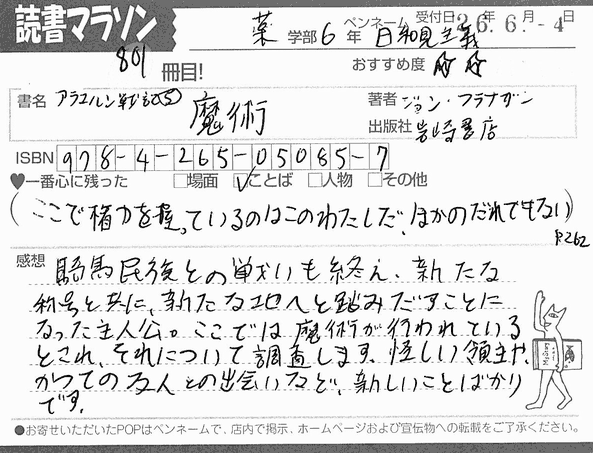 読書マラソン
受付日26年6月-4日
薬学部6年 ペンネーム 日和見主義
801冊目!
おすすめ度 ☆☆
書名 アラルエン戦記⑤ 魔術
著者 ジョン・フラナガン
出版社 岩崎書店
ISBN 978-4-265-05085-7
♥一番心に残った □場面 ☑ことば □人物 □その他
(ここで権力を握っているのはこのわたしだ、ほかのだれでもない)
P.262
感想 騎馬民族との戦いも終え、新たな
称号と共に、新たな地へと踏みだすことに
なった主人公。ここでは魔術が行われている
とされ、それについて調査します。怪しい領主や、
かつての友人との出会いなど、新しいことばかり
です。
●お寄せいただいたPOPはペンネームで、店内で掲示、ホームページおよび宣伝物への転載をご了承ください。